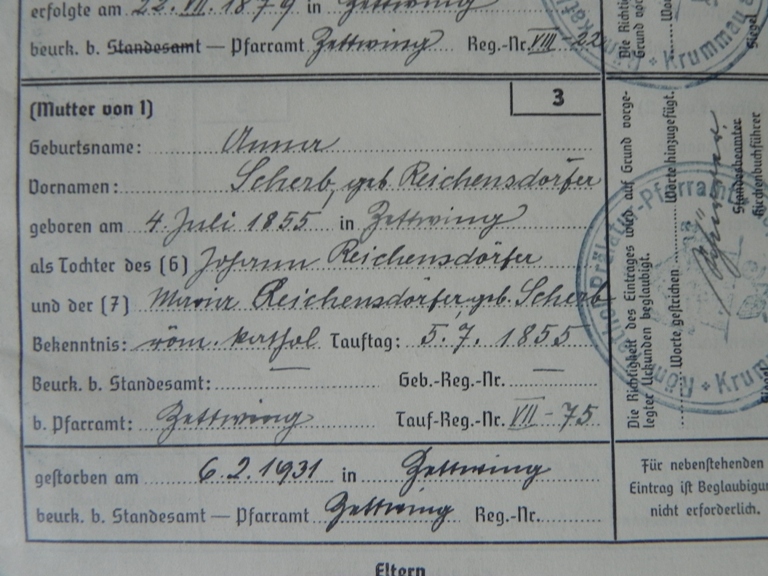 erfolgte am 22. VII. 1879 in Zettwing
beurk. b. Standesamt — Pfarramt Zettwing Reg.-Nr. VIII - 22
(Mutter von 1) 3
Geburtsname: Anna
Vornamen: Scherb, geb. Reichensdörfer
geboren am 4. Juli 1855 in Zettwing
als Tochter des (6) Johann Reichensdörfer
und der (7) Maria Reichensdörfer, geb. Scherb
Bekenntnis: röm. kathol Tauftag: 5. 7. 1855
Beurk. b. Standesamt: — Geb.-Reg.-Nr. —
b. Pfarramt: Zettwing Tauf-Reg.-Nr. VII - 75
gestorben am 6. 2. 1931 in Zettwing
beurk. b. Standesamt — Pfarramt Zettwing Reg.-Nr.
Eltern
Die Richtig
Grund vor
Wor
Siegel
Krummau a
Die Richtigkeit des Eintrages wird auf Grund vorge-
legter Urkunden beglaubigt.
Worte gestrichen Worte hinzugefügt.
Standesbeamter
Kirchenbuchführer
Prälatur-Pfarramt
Krum
Siegel
Für nebenstehenden
Eintrag ist Beglaubigung
nicht erforderlich.